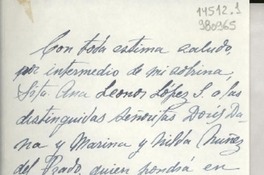 14512.1
980365
Con toda estima saludo,
por intermedio de mi sobrina,
Srta. Ana Leonor López S. a las
distinguidas señoritas Doris Da
na y Marina y Nilda Núñez
del Prado, quien pondrá en